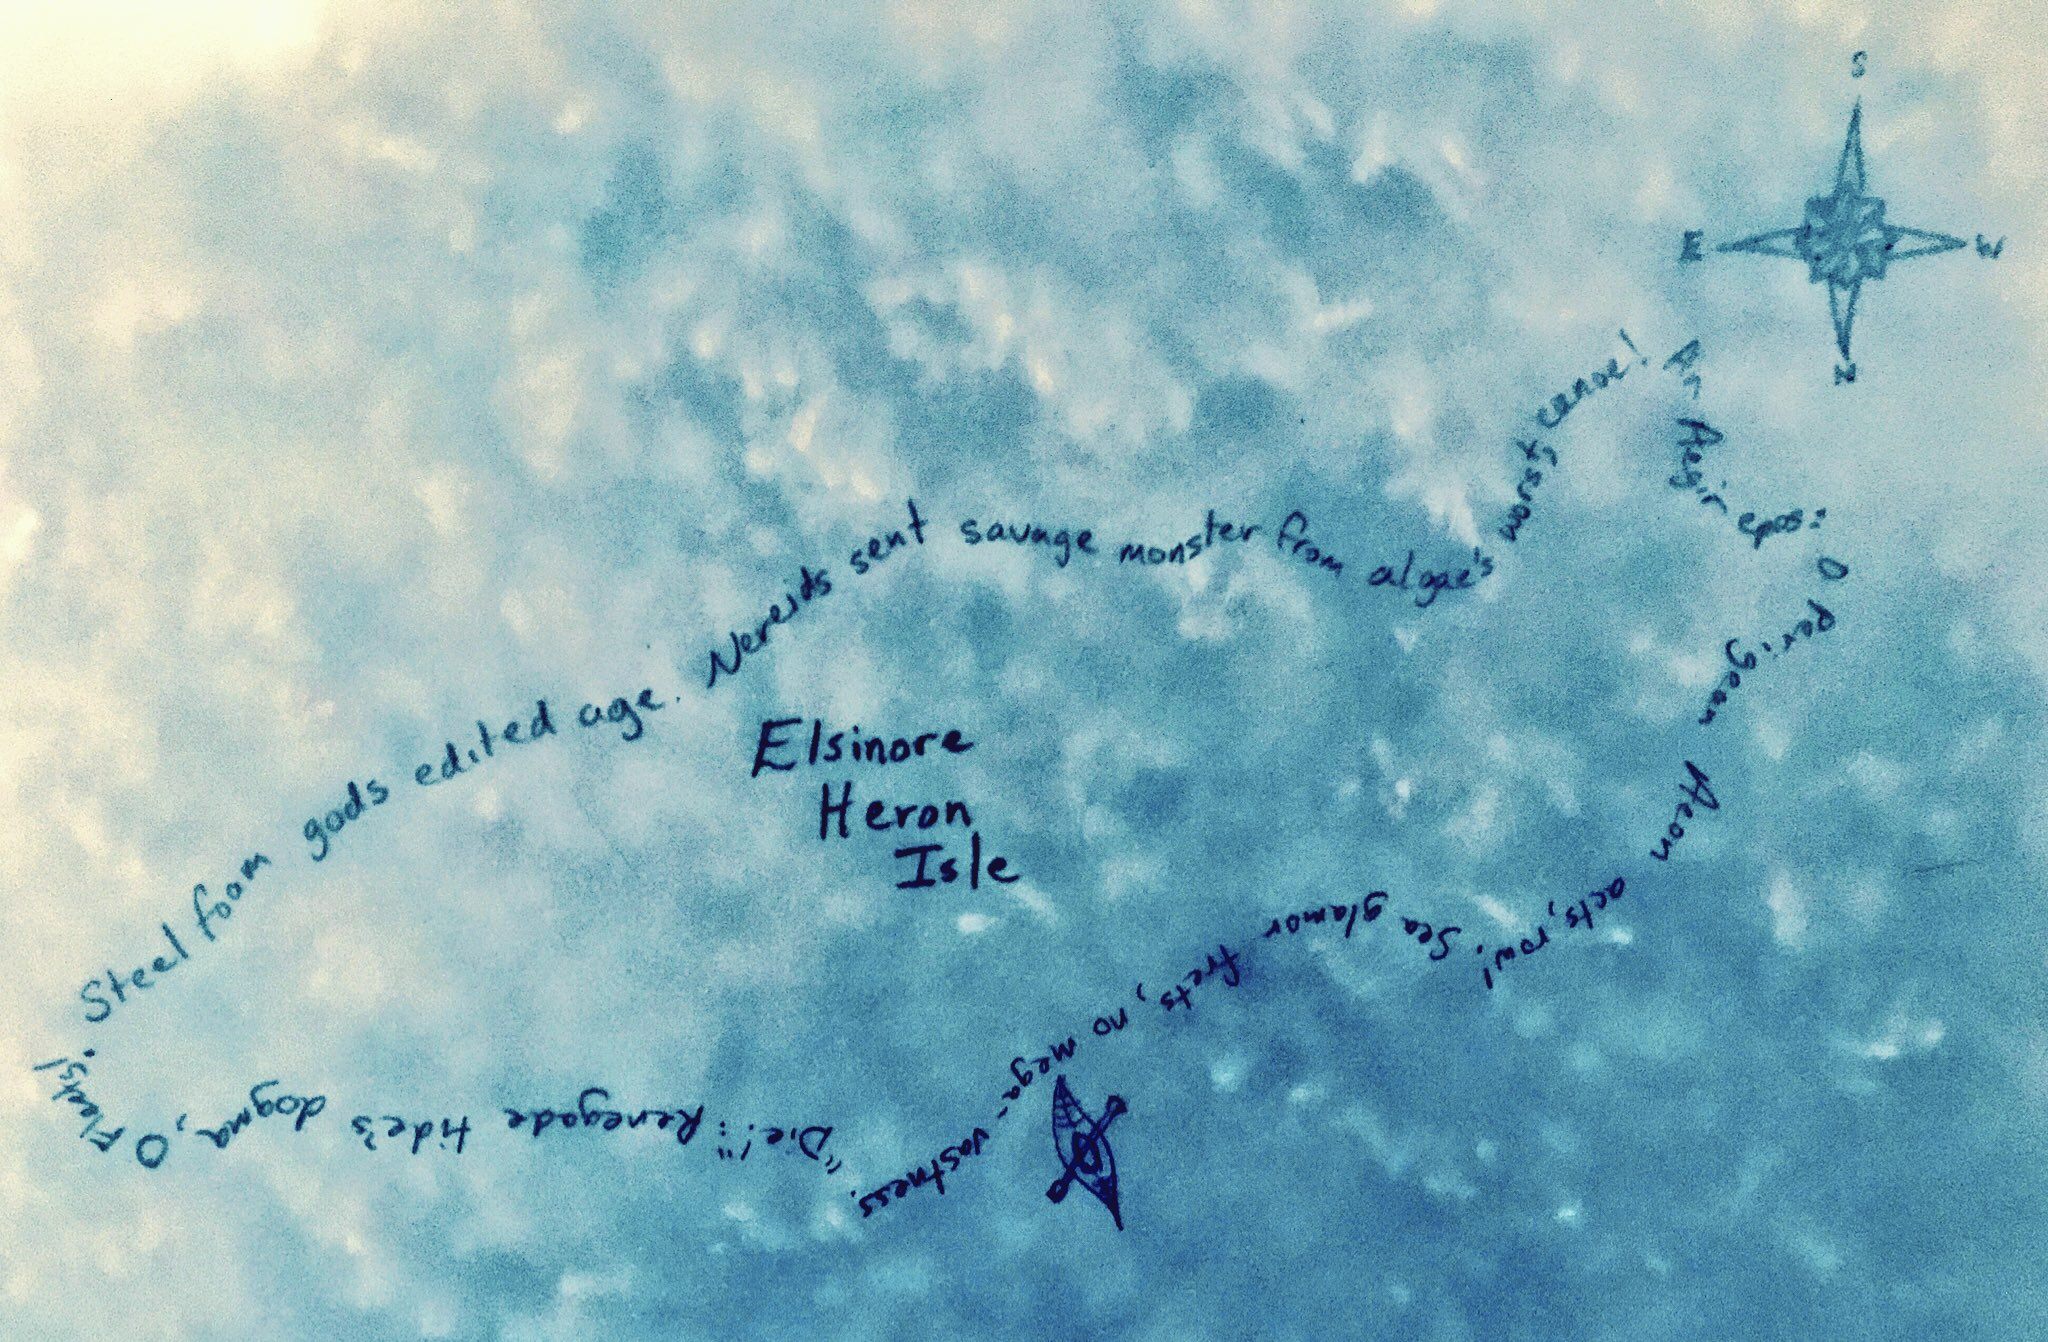 S
E
W
N
An Aegir epos: O
perigean Aeon
acts, row! Sea glamor frets, no mega-vastness.
"Die!": Renegade tide's dogma, O Fleets!
Steel foam gods edited age. Nereids sent savage monster from algae's worst canoe!
Elsinore
Heron
Isle